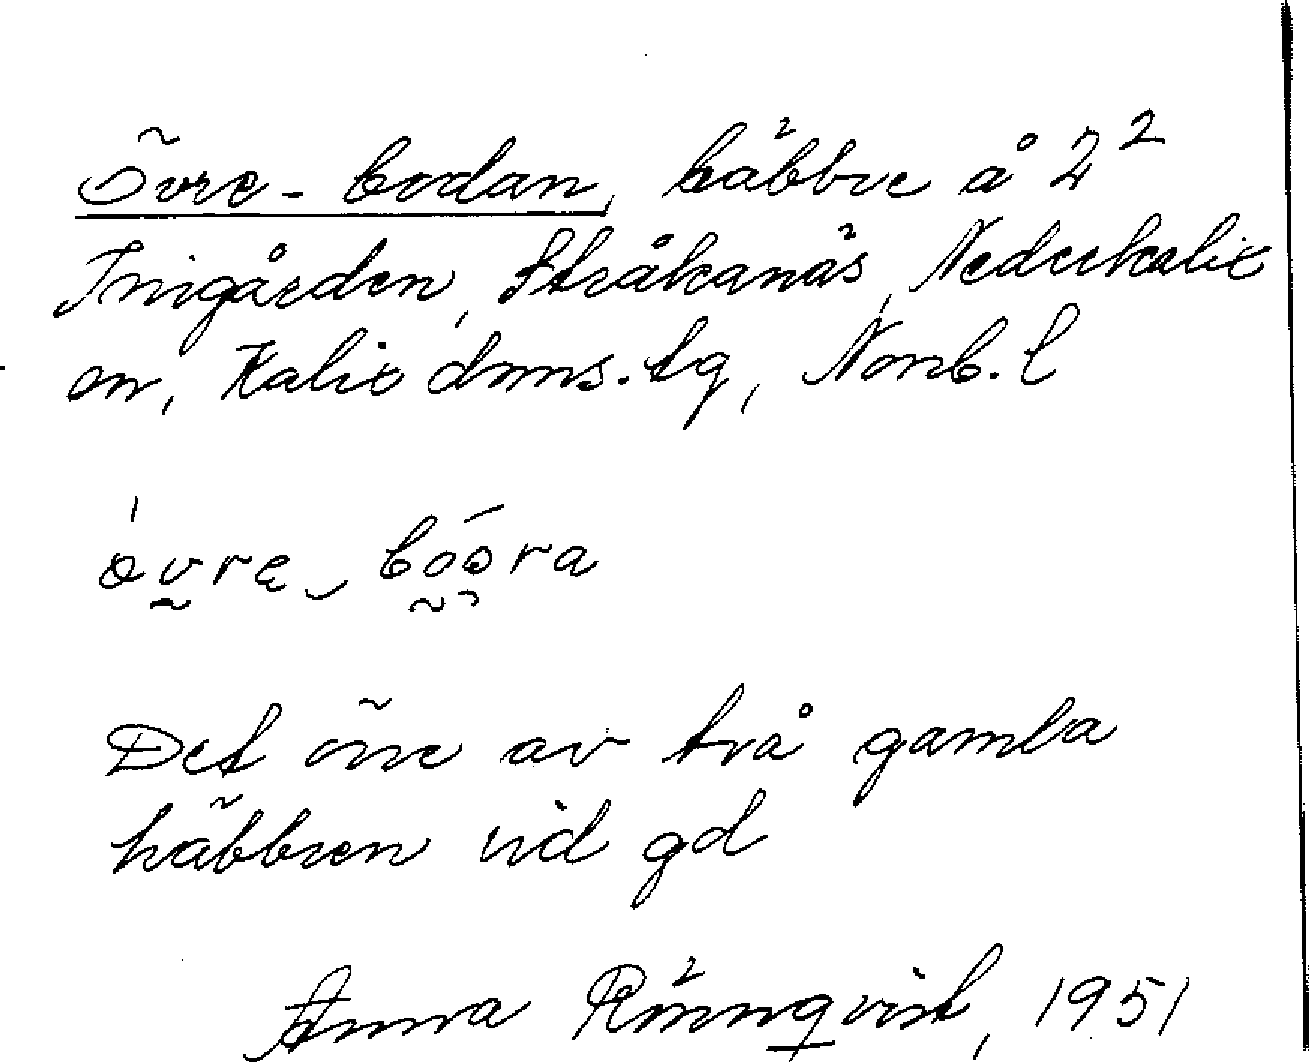 Övre-bodan, häbbre å 2²
Inigården, Stråkanäs, Nederkalix
sn, Kalix doms.tg, Norrb. l
övrę bóöra
Det övre av två gamla
häbbren vid gd
Anna Rönnqvist, 1951